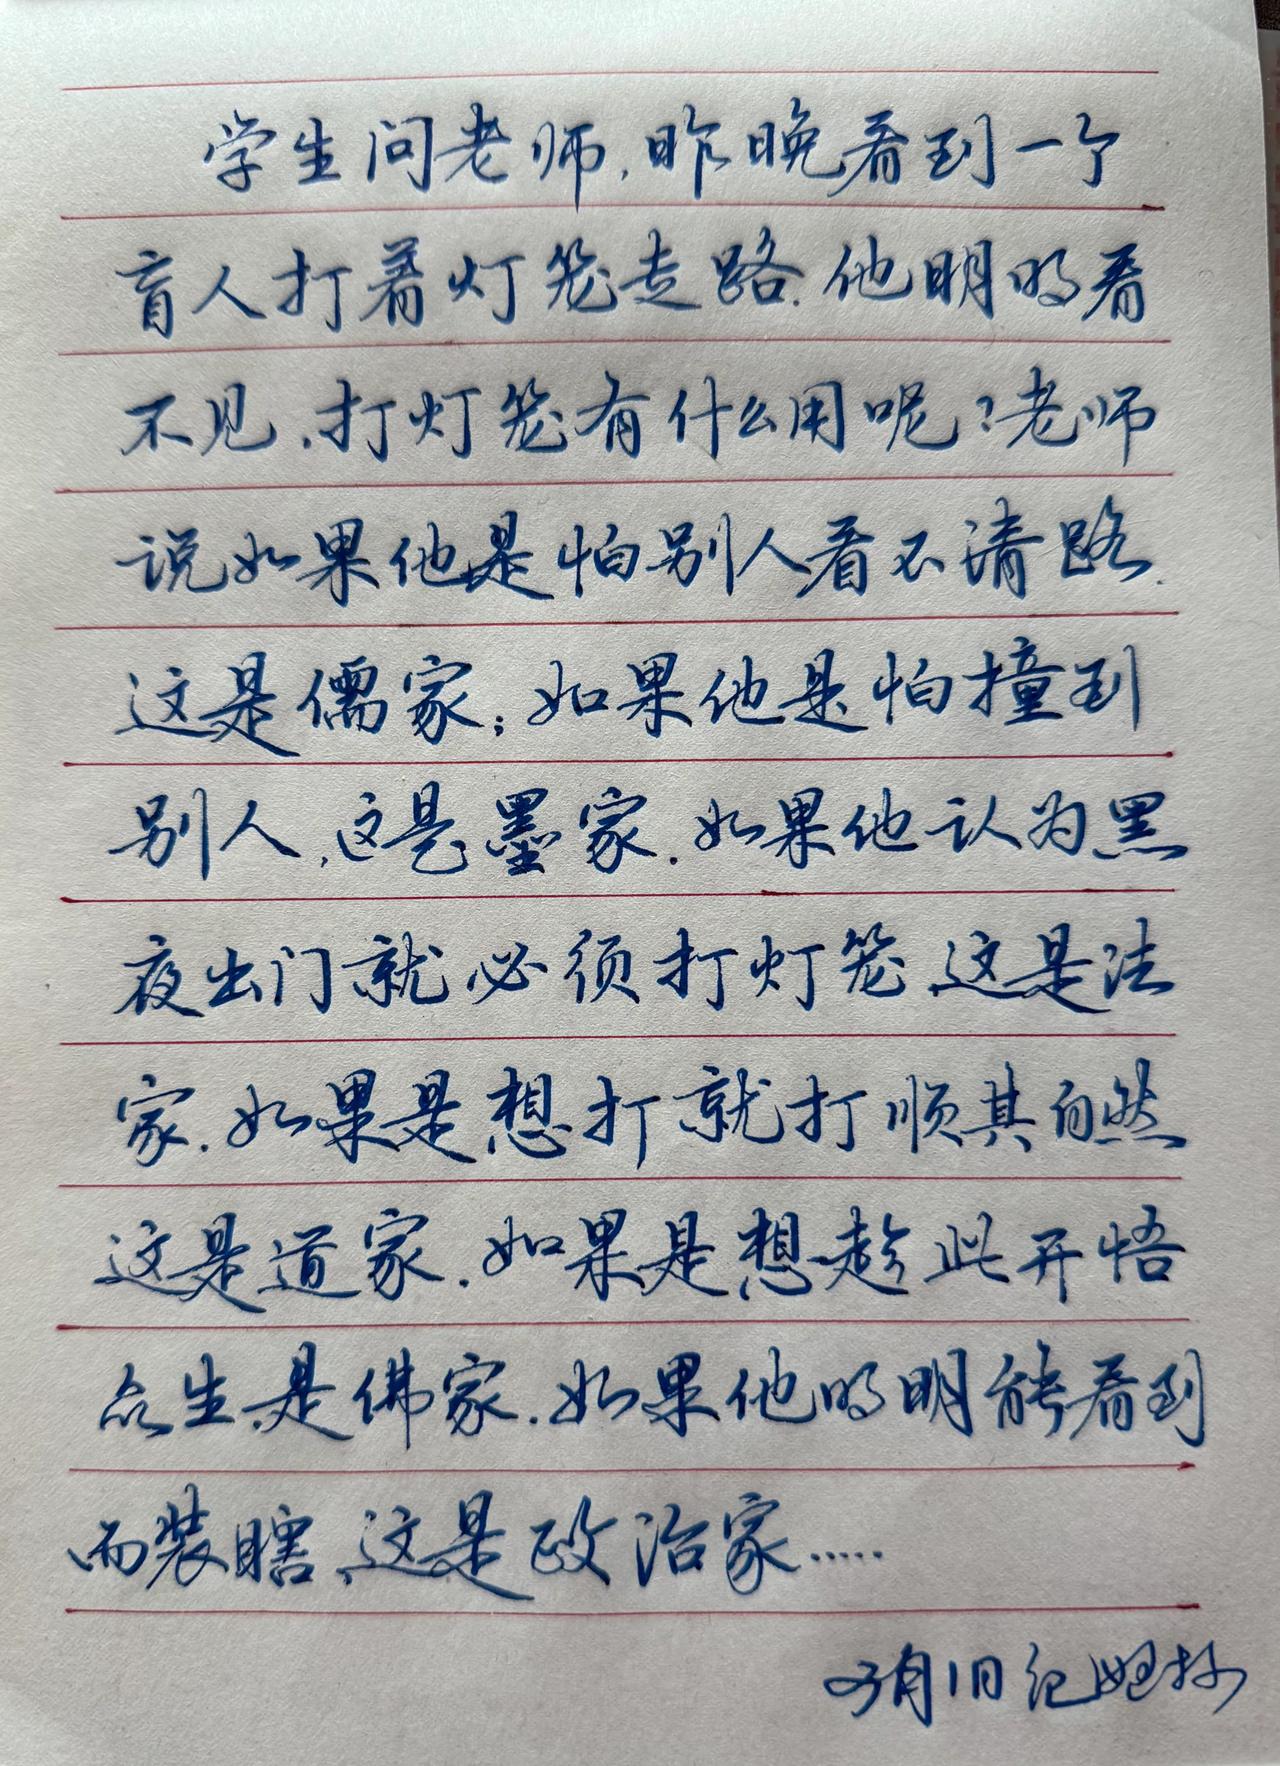 学生问老师,昨晚看到一个
盲人打着灯笼走路.他明明看
不见,打灯笼有什么用呢?老师
说如果他是怕别人看不清路.
这是儒家;如果他是怕撞到
别人,这是墨家.如果他认为黑
夜出门就必须打灯笼,这是法
家.如果是想打就打顺其自然
这是道家.如果是想趁此开悟
众生,是佛家.如果他明明能看到
而装瞎,这是政治家.....
月1日